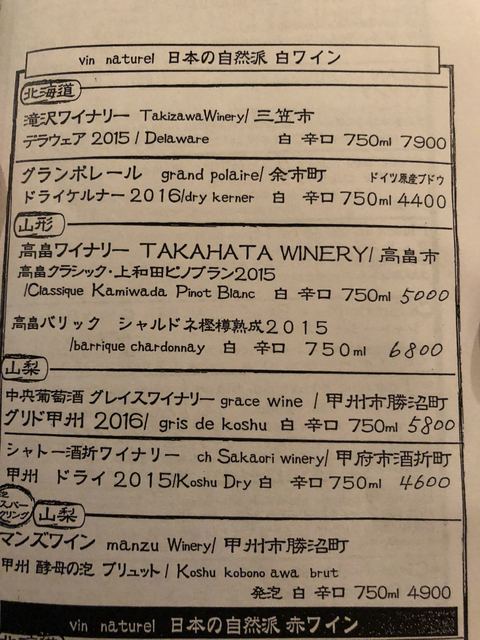 vin naturel 日本の自然派 白ワイン
北海道
滝沢ワイナリー TakizawaWinery/ 三笠市
デラウェア 2015 / Delaware 白 辛口 750ml 7900
グランポレール grand polaire/ 余市町 ドイツ原産ブドウ
ドライケルナー 2016/dry kerner 白 辛口 750ml 4400
山形
高畠ワイナリー TAKAHATA WINERY/ 高畠市
高畠クラシック・上和田ピノブラン2015
/Classique Kamiwada Pinot Blanc 白 辛口 750ml 5000
高畠バリック シャルドネ樫樽熟成2015
/barrique chardonnay 白 辛口 750ml 6800
山梨
中央葡萄酒 グレイスワイナリー grace wine / 甲州市勝沼町
グリド甲州 2016/ gris de koshu 白 辛口 750ml 5800
シャトー酒折ワイナリー ch Sakaori winery/ 甲府市酒折町
甲州 ドライ 2015/Koshu Dry 白 辛口 750ml 4600
スパー
クリング
山梨
マンズワイン manzu Winery/ 甲州市勝沼町
甲州 酵母の泡 ブリュット/ Koshu kobono awa brut
発泡 白 辛口 750ml 4900
vin naturel 日本の自然派 赤ワイン